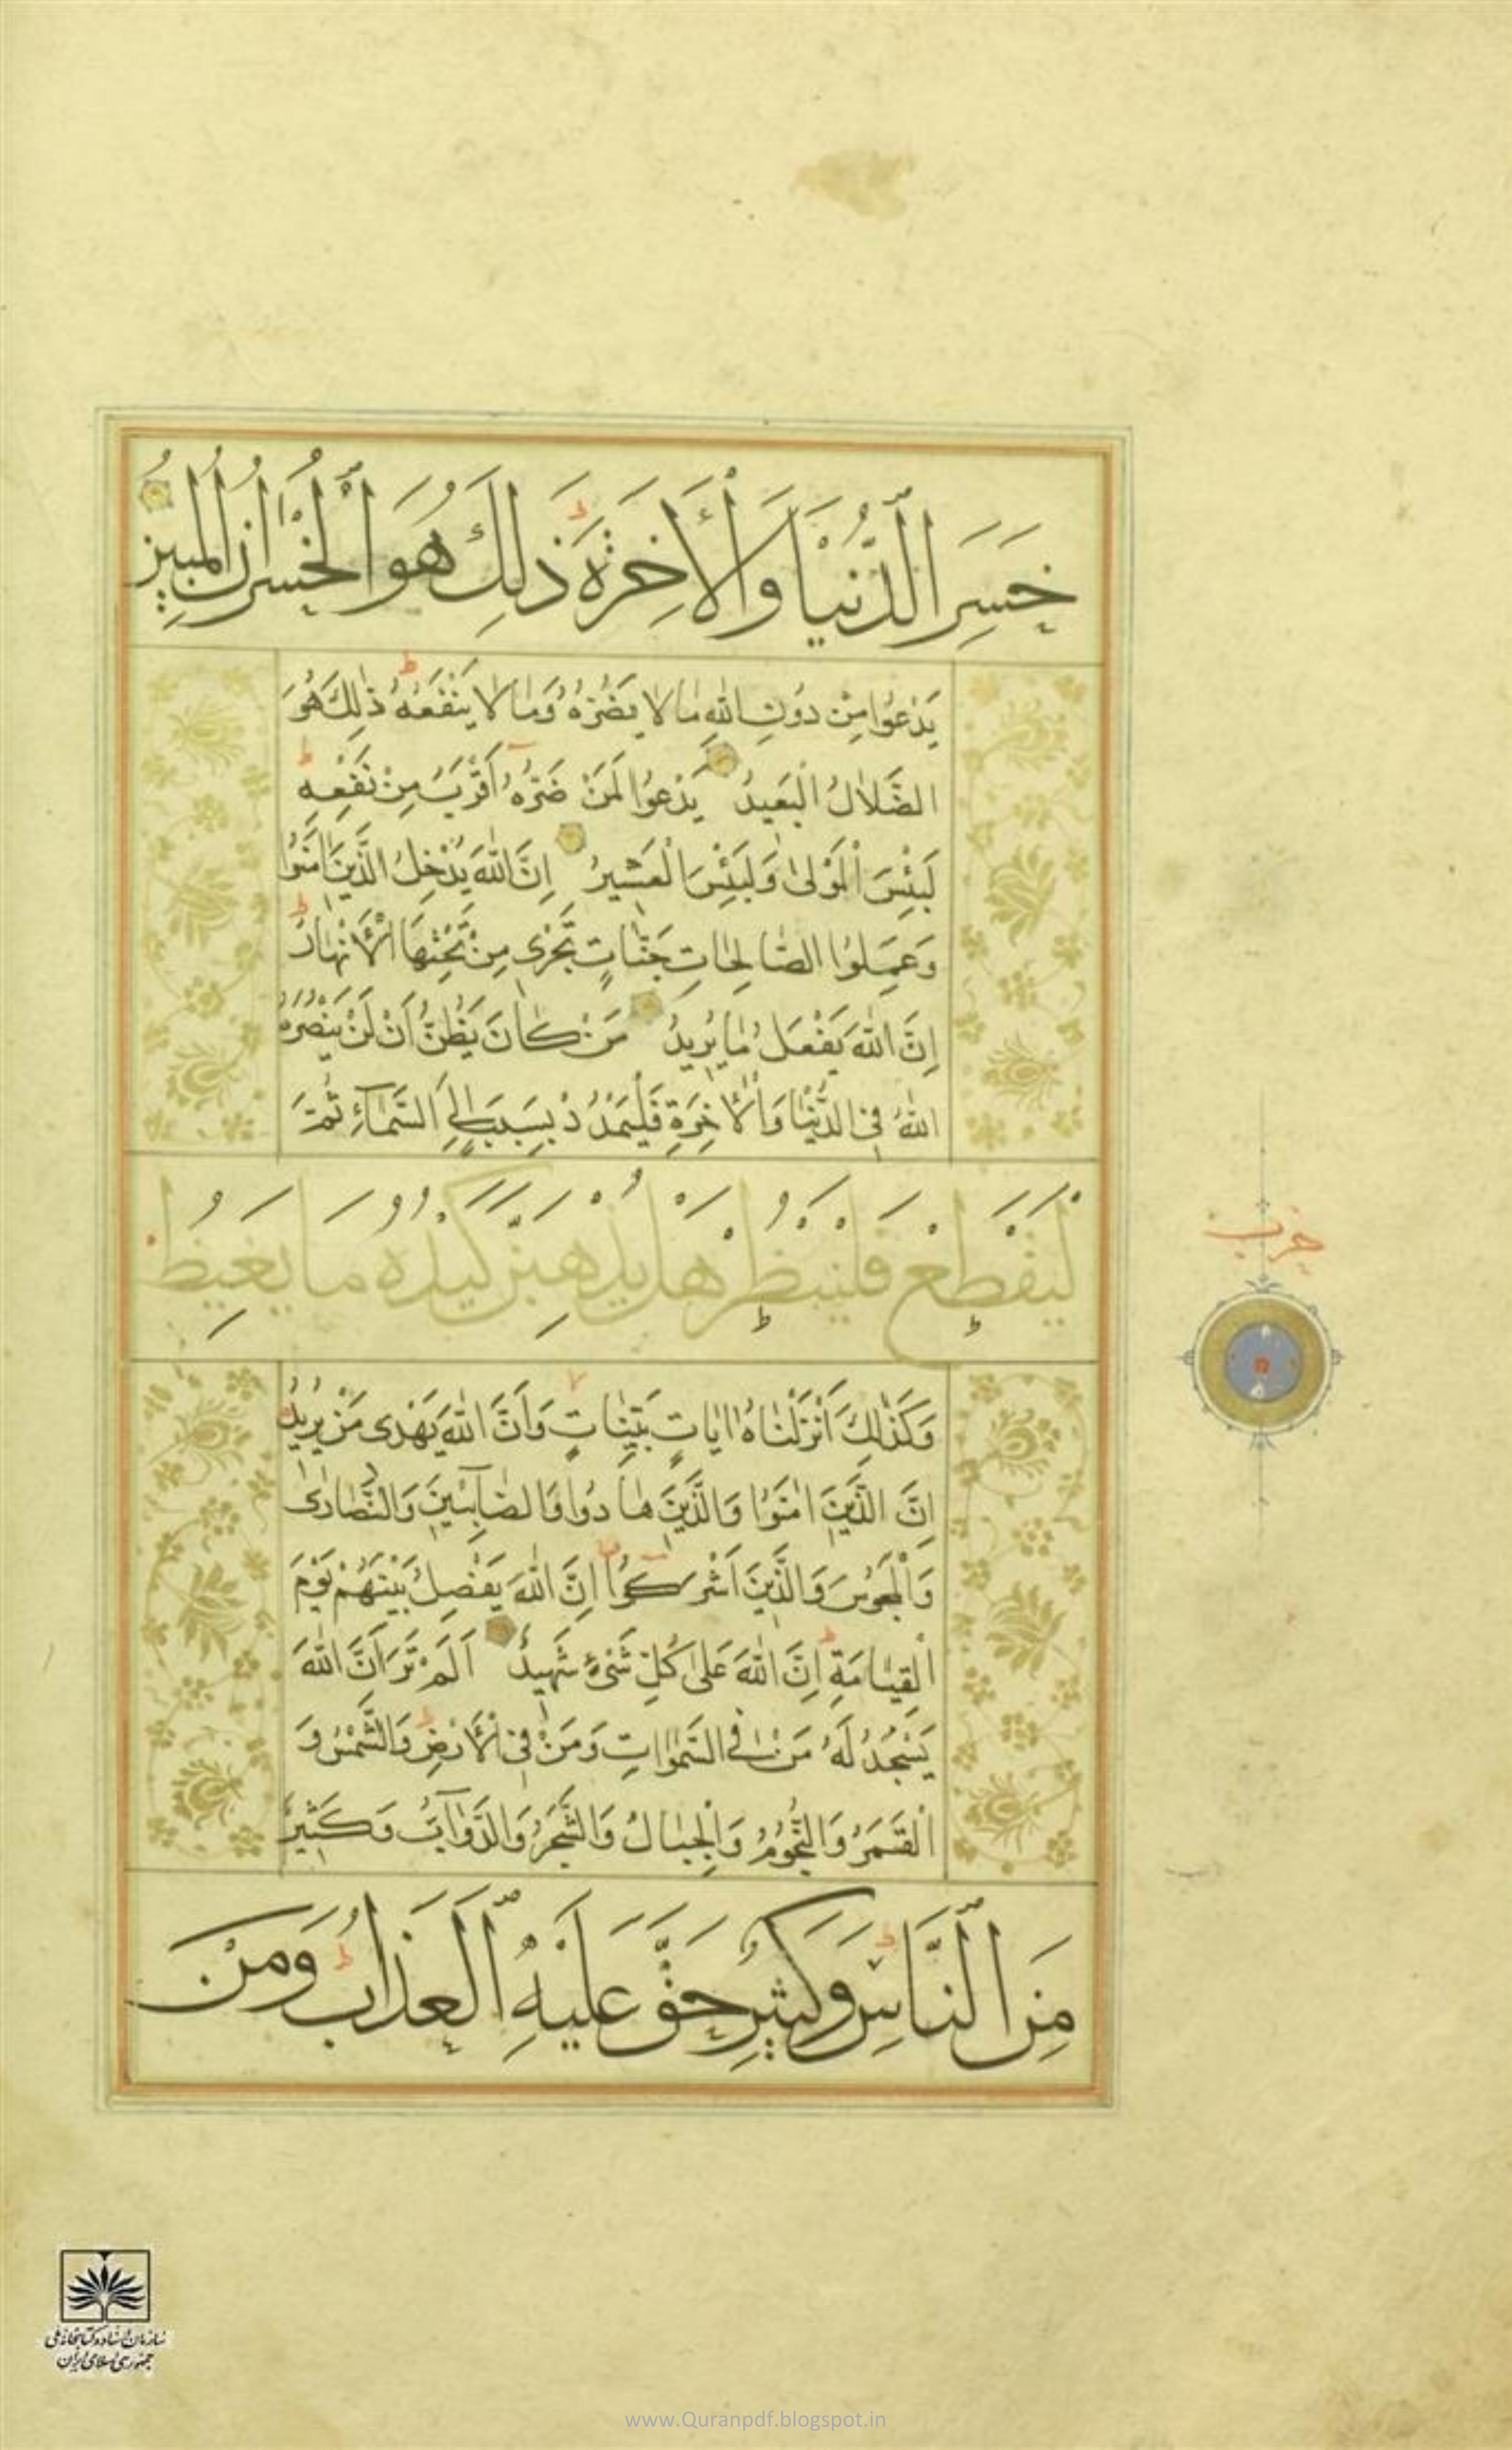 خَسِرَ الدُّنْيَا وَالْأَخِرَةَ ذَلِكَ هُوَ الْخُسْرَانُ الْمُبِينُ
يَدْعُوا مِنْ دُونِ اللهِ مَا لَا يَضُرُّهُ وَمَا لَا يَنْفَعُهُ ذٰلِكَ هُوَ
الضَّلَالُ الْبَعِيدُ يَدْعُوا لَمَنْ ضَرُّهُ أَقْرَبُ مِنْ نَفْعِهِ
لَبِئْسَ الْمَوْلىٰ وَلَبِئْسَ الْعَشِيرُ اِنَّ اللهَ يُدْخِلُ الَّذِينَ اٰمَنُوا
وَعَمِلُوا الصَّالِحَاتِ جَنَّاتٍ تَجْرِى مِنْ تَحْتِهَا الْأَنْهَارُ
اِنَّ اللهَ يَفْعَلُ مَا يُرِيدُ مَنْ كَانَ يَظُنُّ أَنْ لَنْ يَنْصُرَهُ
اللهُ فِى الدُّنْيَا وَالْأَخِرَةِ فَلْيَمْدُدْ بِسَبَبٍ اِلَى السَّمَآءِ ثُمَّ
لْيَقْطَعْ فَلْيَنْظُرْ هَلْ يُذْهِبَنَّ كَيْدُهُ مَا يَغِيظُ
وَكَذٰلِكَ أَنْزَلْنَاهُ اٰيَاتٍ بَيِّنَاتٍ وَأَنَّ اللهَ يَهْدِى مَنْ يُرِيدُ
اِنَّ الَّذِينَ اٰمَنُوا وَالَّذِينَ هَادُوا وَالصَّابِئِينَ وَالنَّصَارىٰ
وَالْمَجُوسَ وَالَّذِينَ اَشْرَكُوا اِنَّ اللهَ يَفْصِلُ بَيْنَهُمْ يَوْمَ
الْقِيَامَةِ اِنَّ اللهَ عَلىٰ كُلِّ شَىْءٍ شَهِيدٌ اَلَمْ تَرَ اَنَّ اللهَ
يَسْجُدُ لَهُ مَنْ فِى السَّمٰوَاتِ وَمَنْ فِى الْأَرْضِ وَالشَّمْسُ وَ
الْقَمَرُ وَالنُّجُومُ وَالْجِبَالُ وَالشَّجَرُ وَالدَّوَآبُّ وَكَثِيرٌ
مِنَ النَّاسِ وَكَثِيرٌ حَقَّ عَلَيْهِ الْعَذَابُ وَمَنْ
حزب
سازمان اسناد و کتابخانه ملی
جمهوری اسلامی ایران
www.Quranpdf.blogspot.in